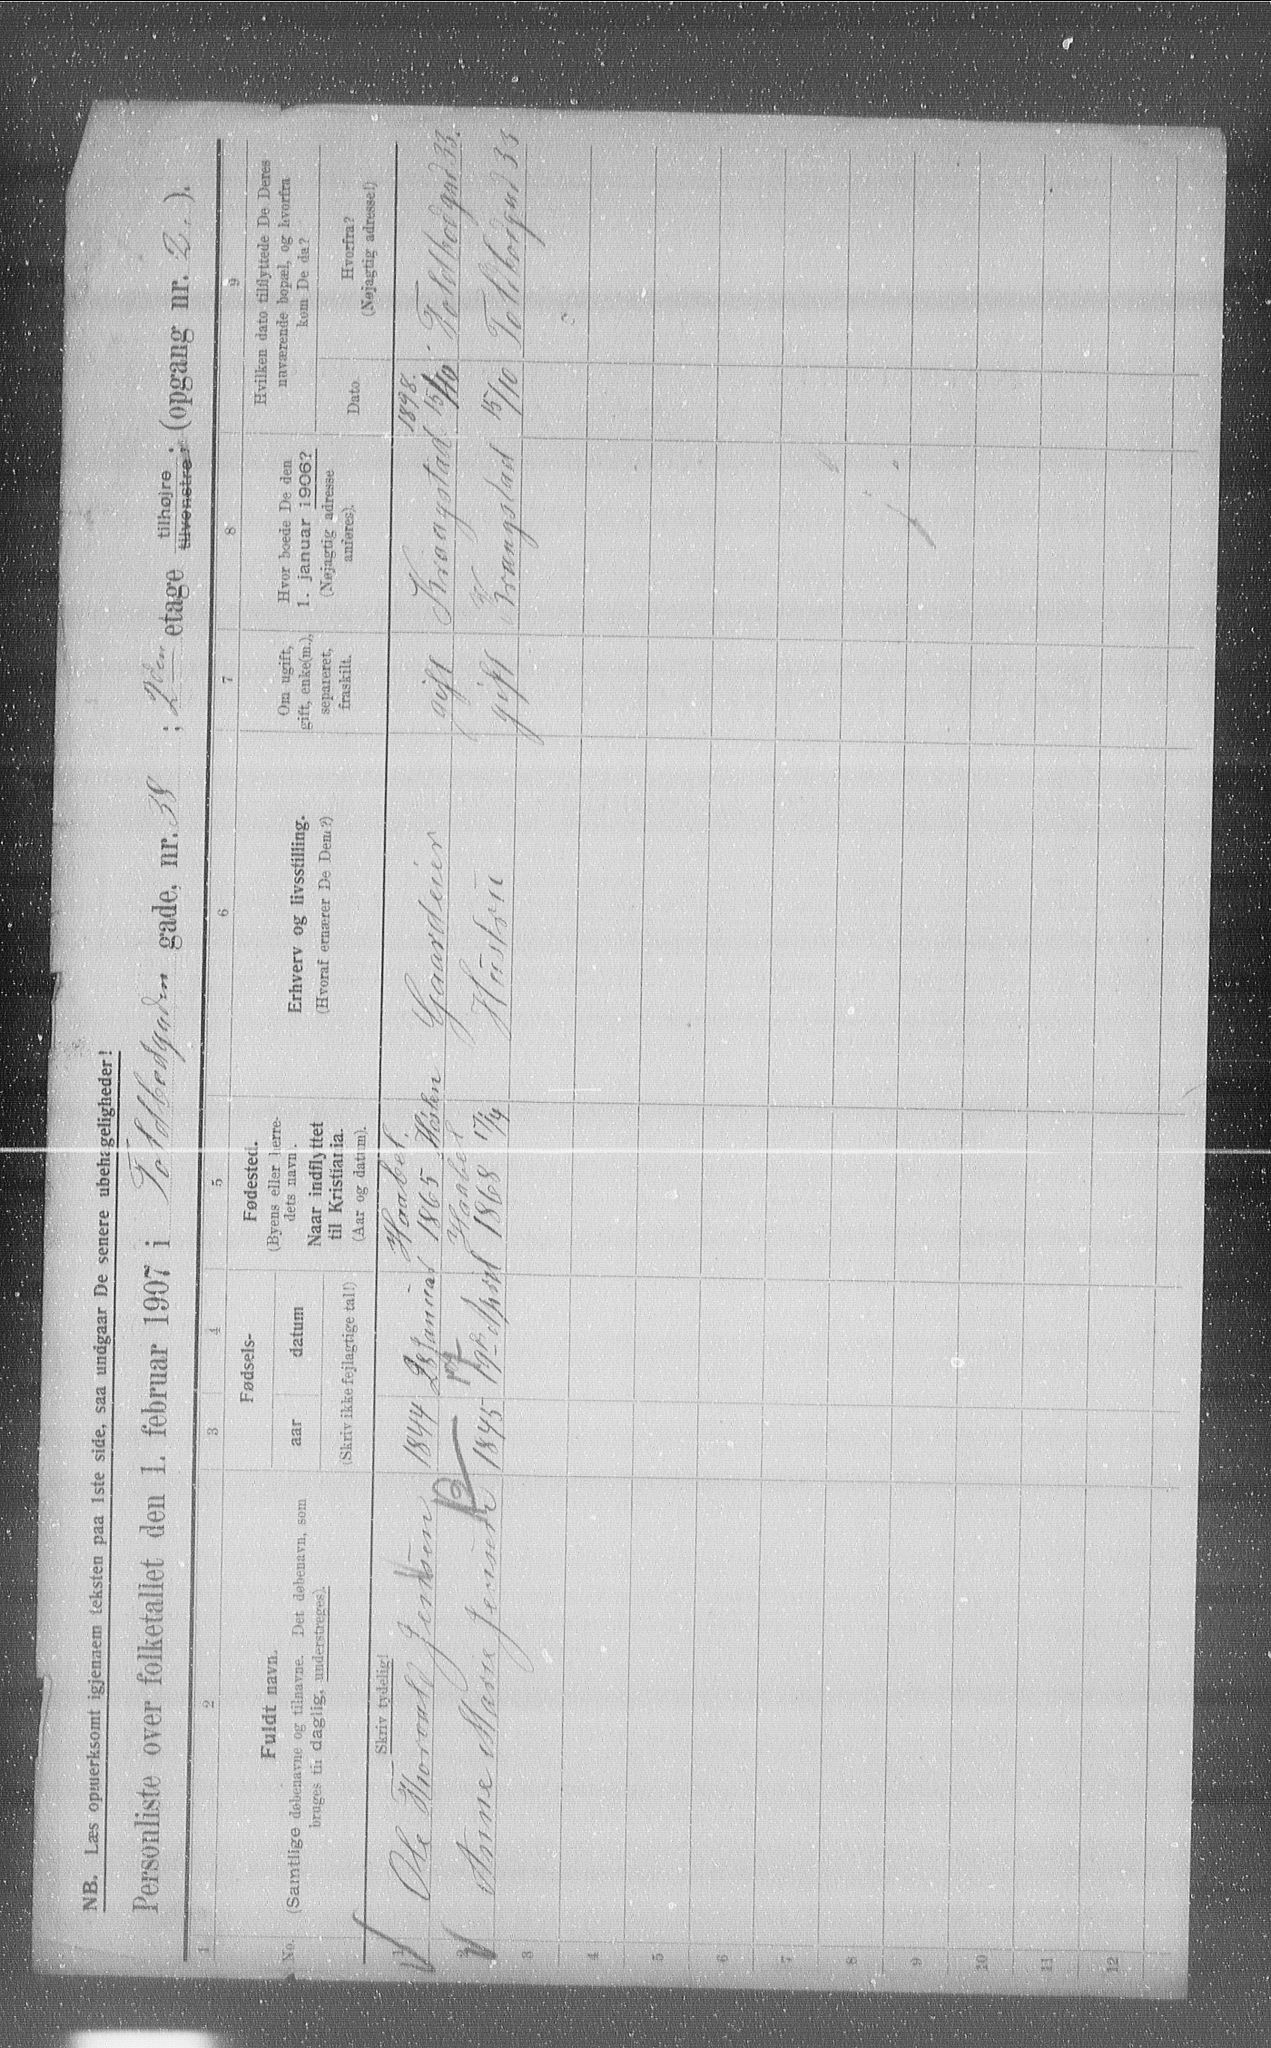 NB. Læs opmerksomt igjennem teksten paa 1ste side, saa undgaar De senere ubehageligheder!
Personliste over folketallet den 1. februar 1907 i Toldbodgaden gade, nr. 38 ; 2den etage tilhøjre tilvenstre. (opgang nr. 2.).
1 2 3 4 5 6 7 8 9
No.
Fuldt navn.
(Samtlige døbenavne og tilnavne. Det døbenavn, som
bruges til daglig, understreges).
Skriv tydelig!
Fødsels-
aar datum
(Skriv ikke fejlagtige tal!)
Fødested.
(Byens eller herre-
dets navn.
Naar indflyttet
til Kristiania.
(Aar og datum).
Erhverv og livsstilling.
(Hvoraf ernærer De Dem?)
Om ugift,
gift, enke(m.),
separeret,
fraskilt.
Hvor boede De den
1. januar 1906?
(Nøjagtig adresse
anføres).
Hvilken dato tilflyttede De Deres
nuværende bopæl, og hvorfra
kom De da?
Dato
Hvorfra?
(Nøjagtig adresse!)
1 Ole Thorvald Jensen 1844 28 Januar Haabel. 1865 Høsten Gaardeier gift Kraagstad 1898. 15/10 Toldbodgad 33.
2 Anne Marie Jensen 1845 19de April Haabel 1868 17/4 Hustru gift Kraagstad 15/10 Toldbodgad 33
3
4
5
6
7
8
9
10
11
12